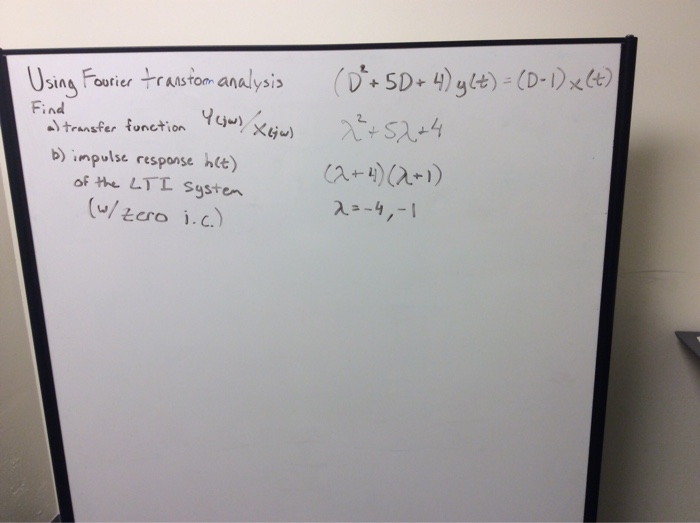 Using Fourier transfom analysis
Find
a) transfer function Y(jω)/X(jω)
b) impulse response h(t)
of the LTI System
(w/ zero i.c.)
(D²+5D+4)y(t)=(D-1)x(t)
λ²+5λ+4
(λ+4)(λ+1)
λ=-4,-1